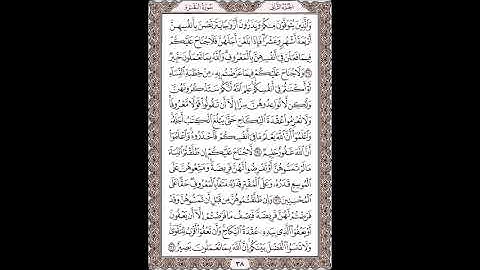 الجُزْءُ الثَّانِي سُورَةُ البَقَرَةِ
وَٱلَّذِينَ يُتَوَفَّوْنَ مِنكُمْ وَيَذَرُونَ أَزْوَٰجًا يَتَرَبَّصْنَ بِأَنفُسِهِنَّ
أَرْبَعَةَ أَشْهُرٍ وَعَشْرًا فَإِذَا بَلَغْنَ أَجَلَهُنَّ فَلَا جُنَاحَ عَلَيْكُمْ
فِيمَا فَعَلْنَ فِىٓ أَنفُسِهِنَّ بِٱلْمَعْرُوفِ وَٱللَّهُ بِمَا تَعْمَلُونَ خَبِيرٌ
٢٣٤ وَلَا جُنَاحَ عَلَيْكُمْ فِيمَا عَرَّضْتُم بِهِۦ مِنْ خِطْبَةِ ٱلنِّسَآءِ
أَوْ أَكْنَنتُمْ فِىٓ أَنفُسِكُمْ عَلِمَ ٱللَّهُ أَنَّكُمْ سَتَذْكُرُونَهُنَّ
وَلَٰكِن لَّا تُوَاعِدُوهُنَّ سِرًّا إِلَّآ أَن تَقُولُوا۟ قَوْلًا مَّعْرُوفًا
وَلَا تَعْزِمُوا۟ عُقْدَةَ ٱلنِّكَاحِ حَتَّىٰ يَبْلُغَ ٱلْكِتَٰبُ أَجَلَهُۥ
وَٱعْلَمُوٓا۟ أَنَّ ٱللَّهَ يَعْلَمُ مَا فِىٓ أَنفُسِكُمْ فَٱحْذَرُوهُ وَٱعْلَمُوٓا۟
أَنَّ ٱللَّهَ غَفُورٌ حَلِيمٌ ٢٣٥ لَّا جُنَاحَ عَلَيْكُمْ إِن طَلَّقْتُمُ ٱلنِّسَآءَ
مَا لَمْ تَمَسُّوهُنَّ أَوْ تَفْرِضُوا۟ لَهُنَّ فَرِيضَةً وَمَتِّعُوهُنَّ عَلَى
ٱلْمُوسِعِ قَدَرُهُۥ وَعَلَى ٱلْمُقْتِرِ قَدَرُهُۥ مَتَٰعًۢا بِٱلْمَعْرُوفِ حَقًّا عَلَى
ٱلْمُحْسِنِينَ ٢٣٦ وَإِن طَلَّقْتُمُوهُنَّ مِن قَبْلِ أَن تَمَسُّوهُنَّ وَقَدْ
فَرَضْتُمْ لَهُنَّ فَرِيضَةً فَنِصْفُ مَا فَرَضْتُمْ إِلَّآ أَن يَعْفُونَ
أَوْ يَعْفُوَا۟ ٱلَّذِى بِيَدِهِۦ عُقْدَةُ ٱلنِّكَاحِ وَأَن تَعْفُوٓا۟ أَقْرَبُ لِلتَّقْوَىٰ
وَلَا تَنسَوُا۟ ٱلْفَضْلَ بَيْنَكُمْ إِنَّ ٱللَّهَ بِمَا تَعْمَلُونَ بَصِيرٌ ٢٣٧
٣٨